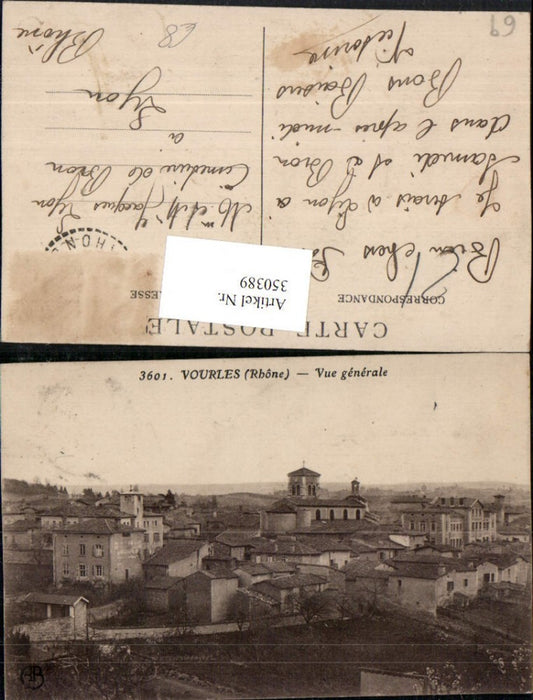 CARTE POSTALE
CORRESPONDANCE
RESSE
Artikel Nr.
350389
Bien chers
Je serai à Lyon
Samedi et à Bron
dans l'après-midi
Bons Baisers
Victorine
Mr et Mme Jacques
Cimetière de Bron
à
Lyon
Rhône
69
3601. VOURLES (Rhône) — Vue générale